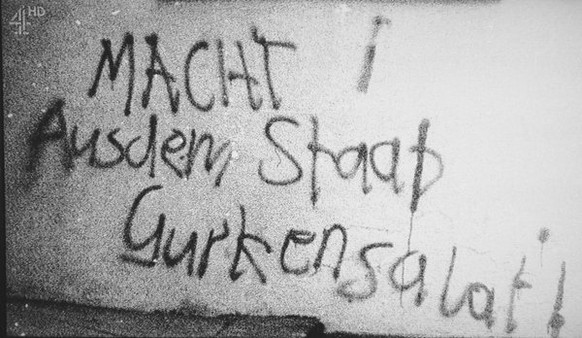 4 HD
MACHT i
Ausdem Staat
Gurkensalat!